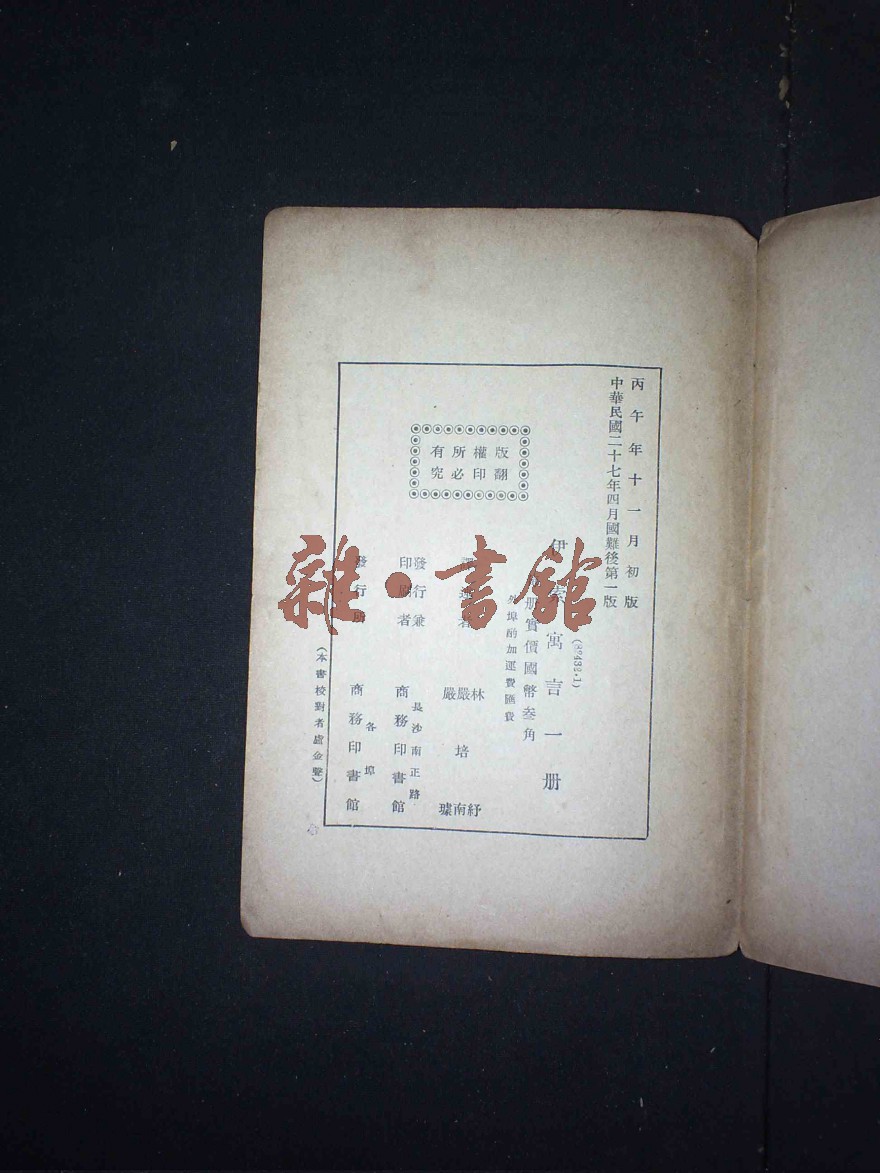 丙午年十一月初版
中華民國二十七年四月國難後第一版
(82432·1)
伊索寓言一册
册實價國幣叁角
外埠酌加運費匯費
版權所有
翻印必究
譯述者
林紓
嚴培南
嚴璩
發行兼印刷者
長沙南正路
商務印書館
發行所
各埠
商務印書館
(本書校對者盧金聲)
雜·書館